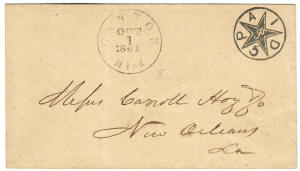 CANTON
OCT
1
1861
Miss
PAID
5
Messrs Carroll Hoy & Co
New Orleans
La